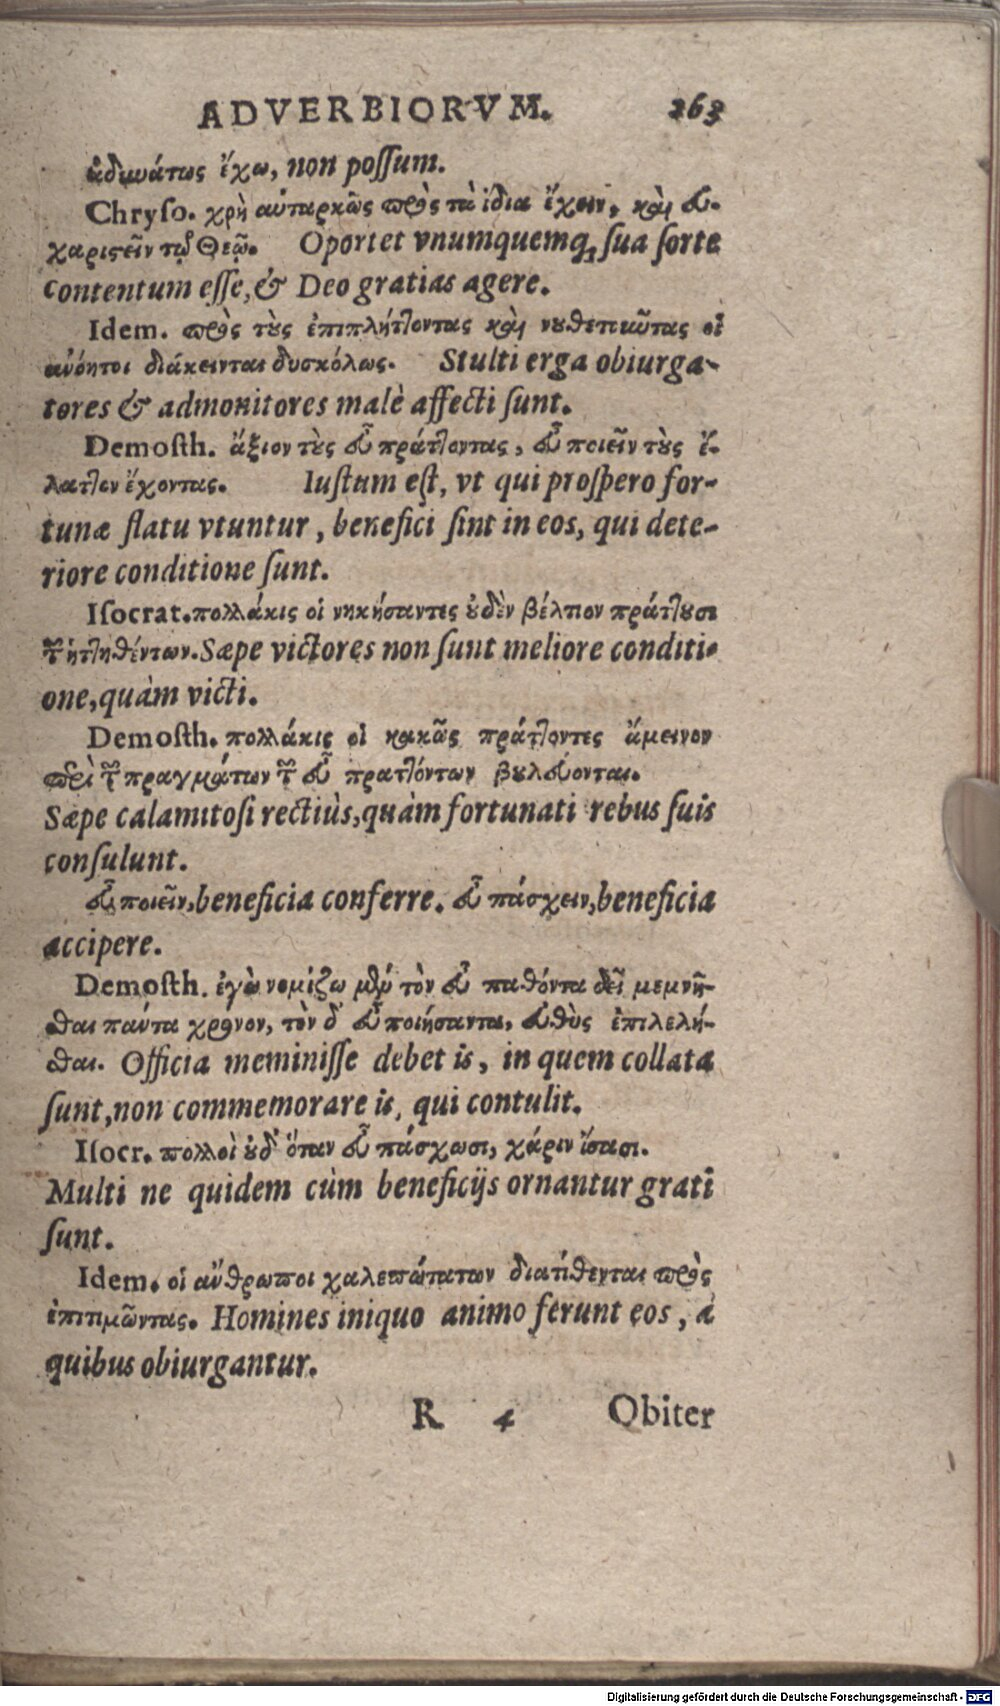 ADVERBIORVM. 263
ἀδυνάτως ἔχω, non poſſum.
Chryſo. χρὴ αὐταρκῶς πρὸς τὰ ἴδια ἔχειν, καὶ εὐ-
χαριστεῖν τῷ Θεῷ. Oportet vnumquemq; ſua ſorte
contentum eſſe, & Deo gratias agere.
Idem. πρὸς τοὺς ἐπιπλήττοντας καὶ νουθετικῶτας οἱ
ἀνόητοι διάκεινται δυσκόλως. Stulti erga obiurga-
tores & admonitores malè affecti ſunt.
Demoſth. ἄξιον τοὺς εὖ πράττοντας, εὖ ποιεῖν τοὺς ἔ-
λαττον ἔχοντας. Iuſtum eſt, vt qui proſpero for-
tunæ flatu vtuntur, benefici ſint in eos, qui dete-
riore conditione ſunt.
Iſocrat. πολλάκις οἱ νικήσαντες οὐδὲν βέλτιον πράττουσι
τῶν ἡττηθέντων. Sæpe victores non ſunt meliore conditi-
one, quàm victi.
Demoſth. πολλάκις οἱ κακῶς πράττοντες ἄμεινον
περὶ τῶν πραγμάτων τῶν εὖ πραττόντων βουλεύονται.
Sæpe calamitoſi rectiùs, quàm fortunati rebus ſuis
conſulunt.
εὖ ποιεῖν, beneficia conferre. εὖ πάσχειν, beneficia
accipere.
Demoſth. ἐγὼ νομίζω μὲν τὸν εὖ παθόντα δεῖ μεμνῆ-
σθαι πάντα χρόνον, τὸν δ' εὖ ποιήσαντα, εὐθὺς ἐπιλελῆ-
σθαι. Officia meminiſſe debet is, in quem collata
ſunt, non commemorare is, qui contulit.
Iſocr. πολλοὶ οὐδ' ὅταν εὖ πάσχωσι, χάριν ἴσασι.
Multi ne quidem cùm beneficijs ornantur grati
ſunt.
Idem. οἱ ἄνθρωποι χαλεπώτατον διατίθενται πρὸς
ἐπιτιμῶντας. Homines iniquo animo ferunt eos, à
quibus obiurgantur.
R 4 Obiter
Digitalisierung gefördert durch die Deutsche Forschungsgemeinschaft - DFG